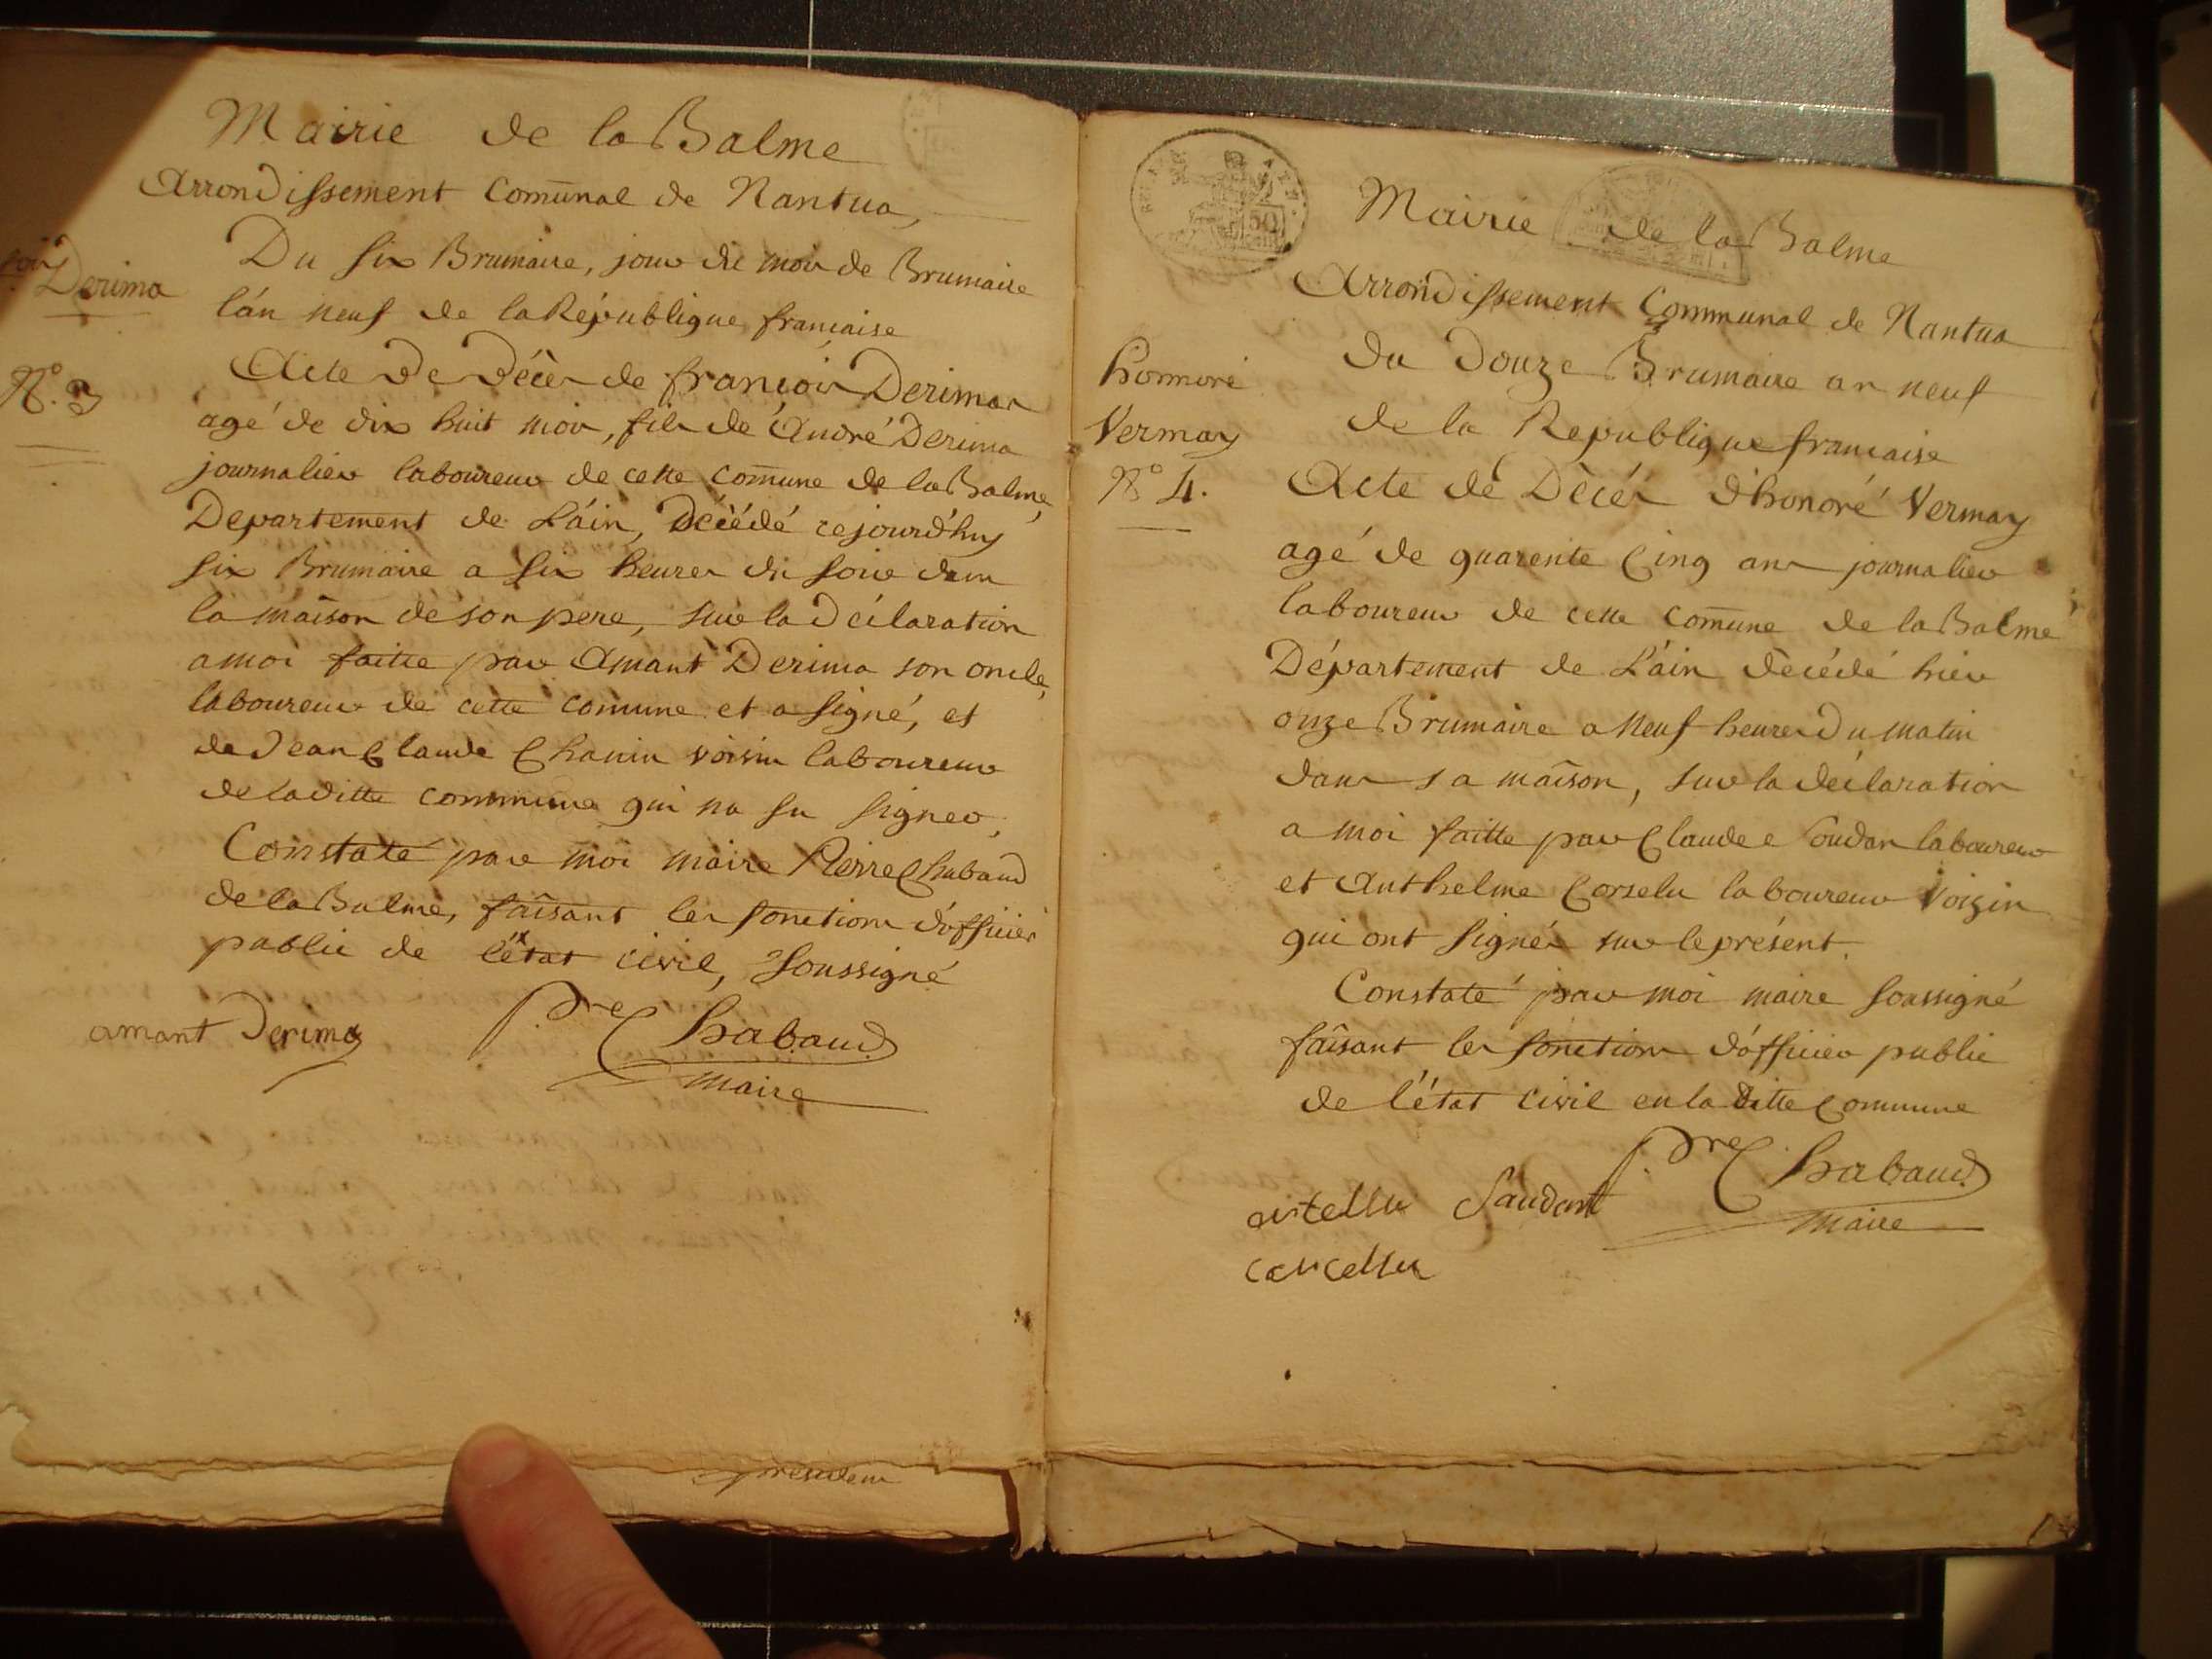 Mairie de la Balme
Arrondissement Comūnal de Nantua,
Du six Brumaire, jour du mois de Brumaire
l'án neuf de la République française
Derima
N.° 3
Acte De Décès de françois Derimas
agé de dix huit mois, fils de André Derima
journalier laboureur de cette comūne de la Balme,
Departement de L'áin, Décédé cejourd'huy
six Brumaire a six heures du soir dans
la maison de son pere, sur la Déclaration
a moi faitte par Amant Derima son oncle,
laboureur de cette comune et a signé, et
de Jean Claude Chanin voisin laboureur
de laditte commune qui na su signer,
Constaté par moi maire Pierre Chabaud
de la Balme, faisant les fonctions d'officier
public de l'état civil, soussigné
amant Derima
P.re Chabaud
maire
president
50
Mairie de la Balme
Arrondissement Communal de Nantua
du Douze Brumaire an neuf
de la Republique francaise
honnoré
Vermay
N° 4.
Acte de Dècés d'honoré Vermay
agé de quarente Cinq ans journalier
laboureur de cette comūne de la Balme
Département de L'áin dècédé hier
onze Brumaire a Neuf heures Du matin
dans sa maison, sur la déclaration
a moi faitte par Claude Soudan laboureur
et Anthelme Corselu laboureur Voizin
qui ont signés sur le présent.
Constaté par moi maire soussigné
faisant les fonctions d'officier public
de l'état civil en la ditte Commune
P.re Chabaud
maire
Saudant